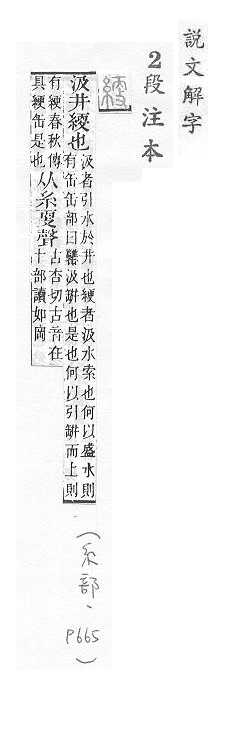 說文解字
2段注本
綆
汲井綆也汲者引水於井也綆者汲水索也何以盛水則
有缶缶部曰䍃汲缾也是也何以引缾而上則
有綆春秋傳
具綆缶是也从糸更聲古杏切古音在
十部讀如岡
(糸部、P665)